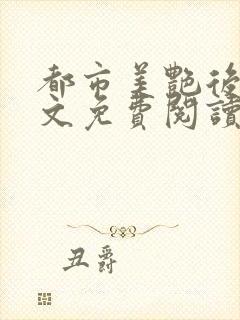 都市美艷後
文免費閱讀
丑爵